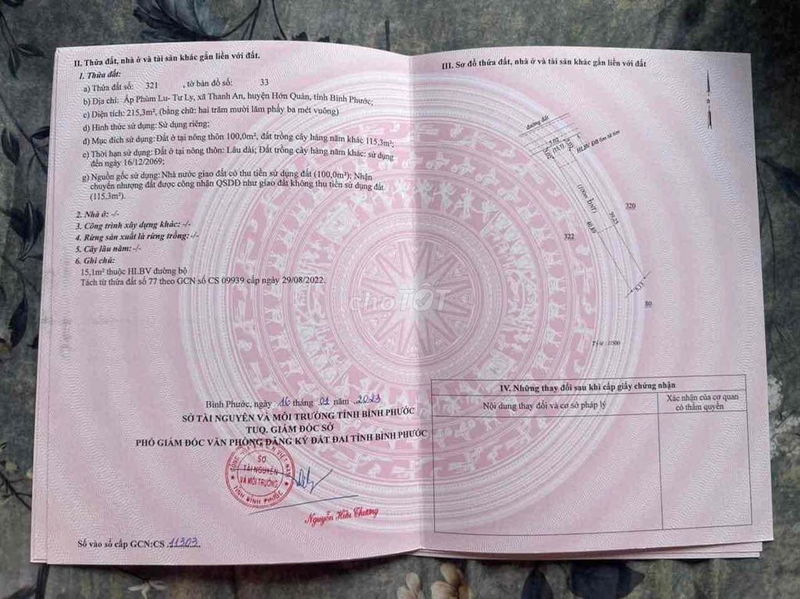 II. Thửa đất, nhà ở và tài sản khác gắn liền với đất.
1. Thửa đất:
a) Thửa đất số: 321 , tờ bản đồ số: 33
b) Địa chỉ: Ấp Phùm Lu- Tư Ly, xã Thanh An, huyện Hớn Quản, tỉnh Bình Phước;
c) Diện tích: 215,3m², (bằng chữ: hai trăm mười lăm phẩy ba mét vuông)
d) Hình thức sử dụng: Sử dụng riêng;
đ) Mục đích sử dụng: Đất ở tại nông thôn 100,0m², đất trồng cây hàng năm khác 115,3m²;
e) Thời hạn sử dụng: Đất ở tại nông thôn: Lâu dài; Đất trồng cây hàng năm khác: sử dụng
đến ngày 16/12/2069;
g) Nguồn gốc sử dụng: Nhà nước giao đất có thu tiền sử dụng đất (100,0m²); Nhận
chuyển nhượng đất được công nhận QSDĐ như giao đất không thu tiền sử dụng đất
(115,3m²).
2. Nhà ở: -/-
3. Công trình xây dựng khác: -/-
4. Rừng sản xuất là rừng trồng: -/-
5. Cây lâu năm: -/-
6. Ghi chú:
15,1m² thuộc HLBV đường bộ
Tách từ thửa đất số 77 theo GCN số CS 09939 cấp ngày 29/08/2022.
Bình Phước, ngày 16 tháng 01 năm 2023
SỞ TÀI NGUYÊN VÀ MÔI TRƯỜNG TỈNH BÌNH PHƯỚC
TUQ. GIÁM ĐỐC SỞ
PHÓ GIÁM ĐỐC VĂN PHÒNG ĐĂNG KÝ ĐẤT ĐAI TỈNH BÌNH PHƯỚC
SỞ
TÀI NGUYÊN
VÀ MÔI TRƯỜNG
TỈNH BÌNH PHƯỚC
Nguyễn Hữu Thương
Số vào sổ cấp GCN:CS 11303.
chợTỐT
III. Sơ đồ thửa đất, nhà ở và tài sản khác gắn liền với đất
đường đất
HLBV ĐB tim 08 tim
(100m² ĐNT)
320
39.25
40.19
322
5.33
80
Tỷ lệ : 1/500
IV. Những thay đổi sau khi cấp giấy chứng nhận
Nội dung thay đổi và cơ sở pháp lý
Xác nhận của cơ quan
có thẩm quyền